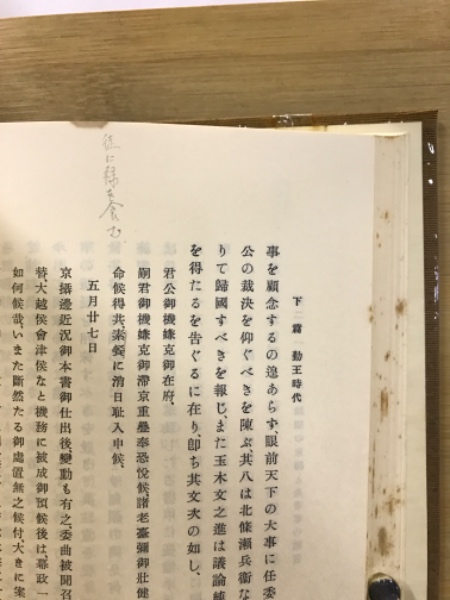 下二篇 勤王時代
事を顧念するの遑あらず、眼前天下の大事に任委
公の裁決を仰ぐべきを陳ぶ、其八は北條瀬兵衛な
りて歸國すべきを報じ、また玉木文之進は議論
を得たるを告ぐるに在り、卽ち其文次の如し、
君公御機嫌克御在府、
嗣君御機嫌克御滞京重疊奉恐悅候、諸老臺彌御壯健
命候得共、素餐に消日耻入申候、
徒に祿を食む
五月廿七日
京攝邊近況御本書御仕出後、變動も有之、委曲被聞召
替、大越侯會津侯なと機務に被成御預候後は、幕政一
如何候哉、いまた斷然たる御處置無之候付、大きに案